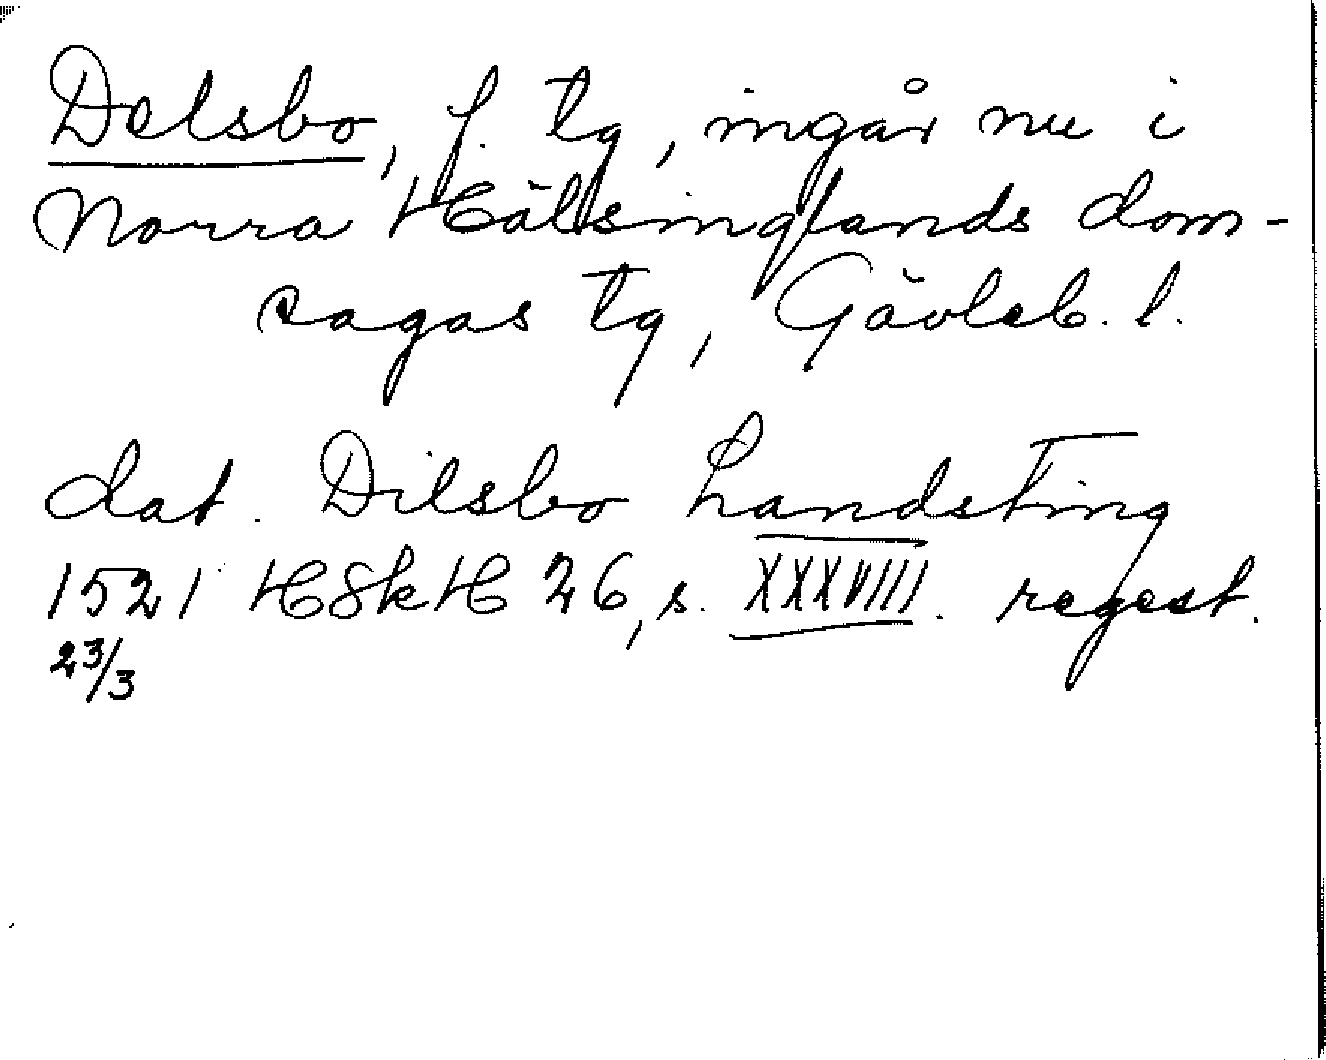 Delsbo, f. tg, ingår nu i
Norra Hälsinglands dom-
sagas tg, Gävleb. l.
dat. Dilsbo Landsting
1521 HSkH 26, s. XXXVIII. regest.
23/3